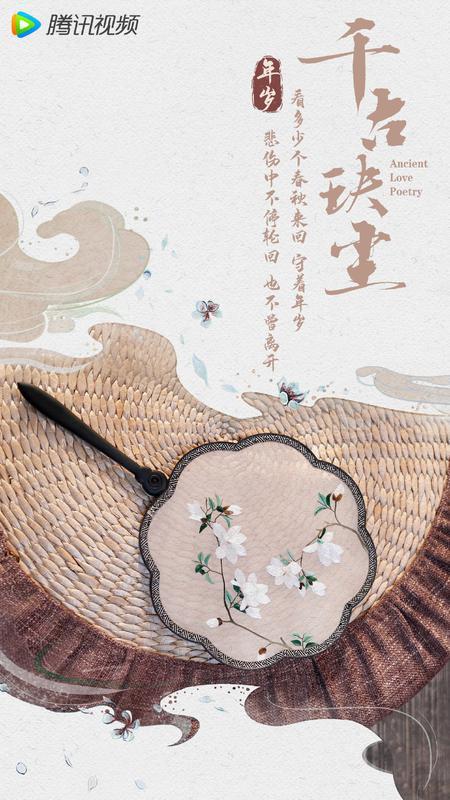 腾讯视频
千古玦尘
Ancient
Love
Poetry
年岁
看多少个春秋来回 守着年岁
悲伤中不停轮回 也不曾离开